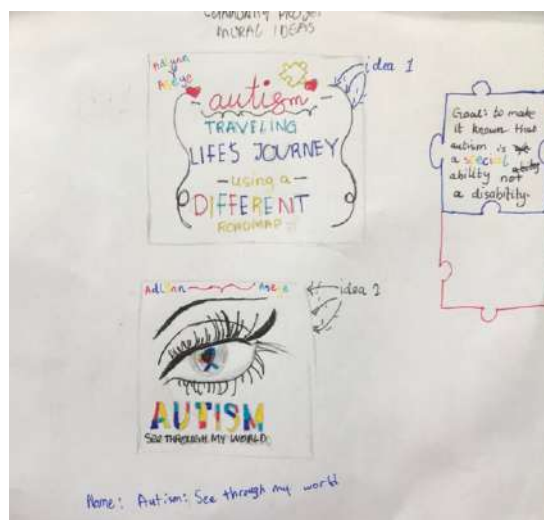 COMMUNITY PROJECT
MURAL IDEAS
idea 1
autism
TRAVELING
LIFE'S JOURNEY
-using a-
DIFFERENT
ROADMAP
Goal: to make
it known that
autism is
a special
ability not
a disability.
idea 2
AUTISM
SEE THROUGH MY WORLD
Name: Autism: See through my world